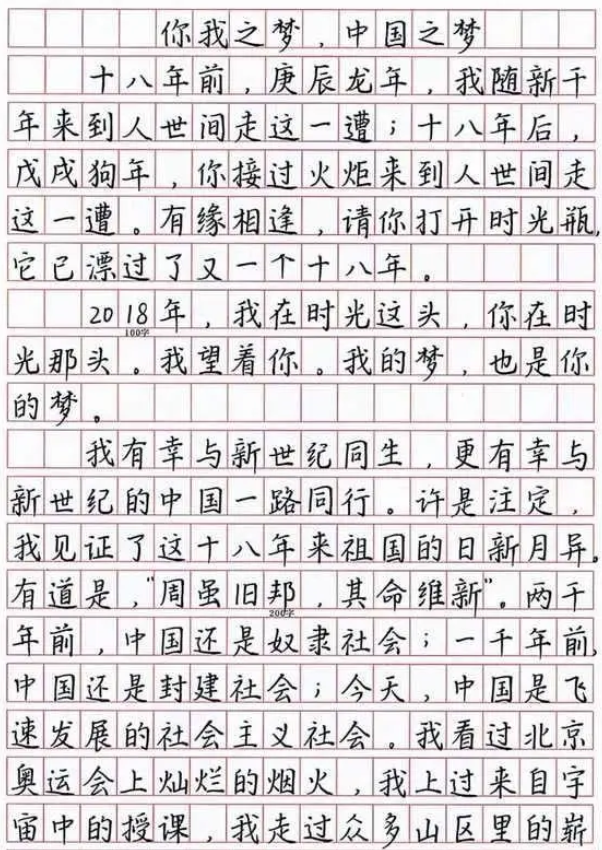 你我之梦，中国之梦
十八年前，庚辰龙年，我随新千
年来到人世间走这一遭；十八年后，
戊戌狗年，你接过火炬来到人世间走
这一遭。有缘相逢，请你打开时光瓶，
它已漂过了又一个十八年。
2018年，我在时光这头，你在时
100字
光那头。我望着你。我的梦，也是你
的梦。
我有幸与新世纪同生，更有幸与
新世纪的中国一路同行。许是注定，
我见证了这十八年来祖国的日新月异。
有道是，“周虽旧邦，其命维新”。两千
200字
年前，中国还是奴隶社会；一千年前，
中国还是封建社会；今天，中国是飞
速发展的社会主义社会。我看过北京
奥运会上灿烂的烟火，我上过来自宇
宙中的授课，我走过众多山区里的崭